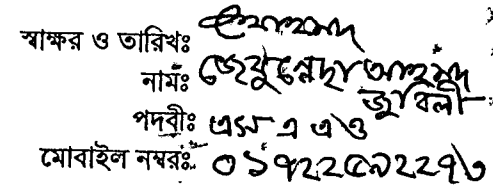 স্বাক্ষর ও তারিখঃ
নামঃ জেবুন্নেছা আহমদ
জুবিলী
পদবীঃ এস এ এ ও
মোবাইল নম্বরঃ ০১৭২২৫৯২২৭৩